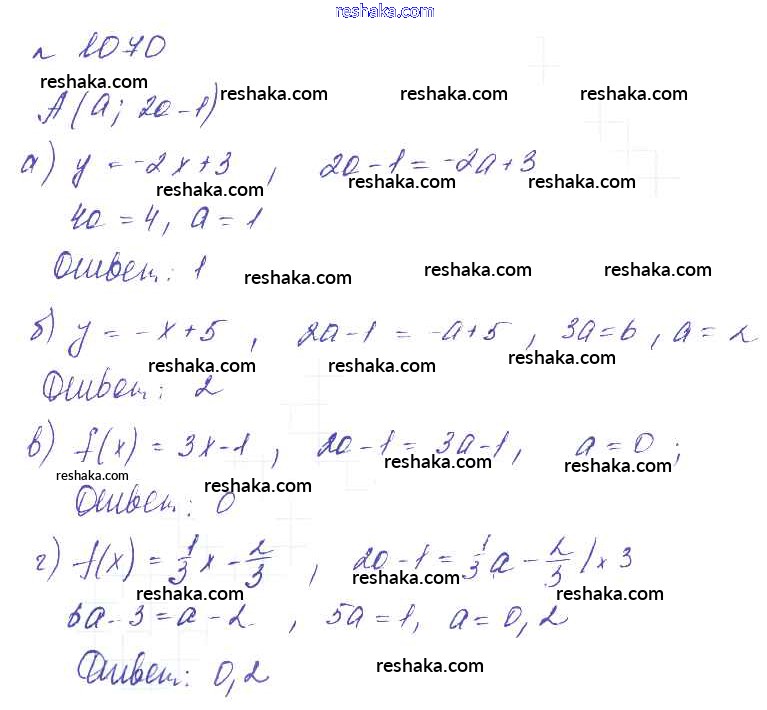 reshaka.com
№ 1070
reshaka.com reshaka.com reshaka.com reshaka.com
A(a; 2a-1)
а) y = -2x+3, 2a-1 = -2a+3
reshaka.com reshaka.com reshaka.com
4a = 4, a = 1
Ответ: 1
reshaka.com reshaka.com reshaka.com
б) y = -x+5, 2a-1 = -a+5, 3a=6, a = 2
reshaka.com reshaka.com reshaka.com
Ответ: 2
в) f(x) = 3x-1, 2a-1 = 3a-1, a = 0;
reshaka.com reshaka.com reshaka.com reshaka.com
Ответ: 0
г) f(x) = 1/3 x - 2/3, 2a-1 = 1/3 a - 2/3 | × 3
reshaka.com reshaka.com
6a-3 = a-2, 5a = 1, a = 0,2
reshaka.com reshaka.com
Ответ: 0,2
reshaka.com